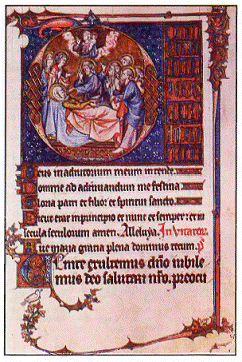 Deus in adiutorium meum intende
Domine ad adiuuandum me festina
Gloria patri et filio: et spiritui sancto
Sicut erat in principio et nunc et semper: et in
secula seculorum amen. Alleluya. Inuitator.
Aue maria gratia plena dominus tecum. p̄
Uenite exultemus dn̄o iubile
mus deo salutari nr̄o. preocu